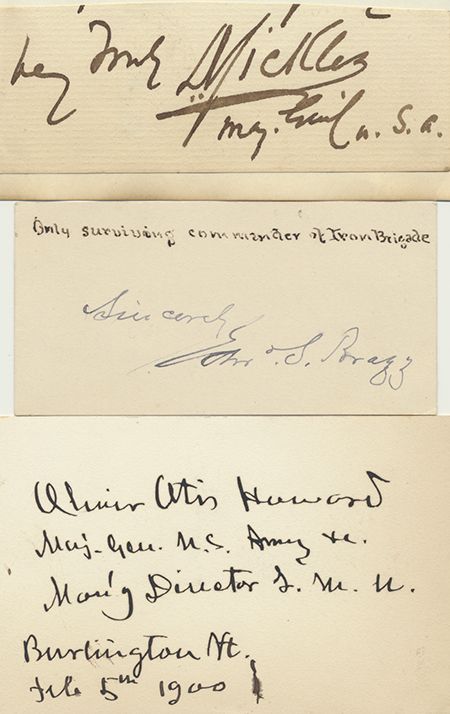 Very Truly DSickles
Maj. Genl U.S.A.
Only surviving commander of Iron Brigade
Sincerely
Edw. S. Bragg
Oliver Otis Howard
Maj-Gen. U.S. Army &c.
Man'g Director L. M. U.
Burlington Vt.
Feb 5th 1900